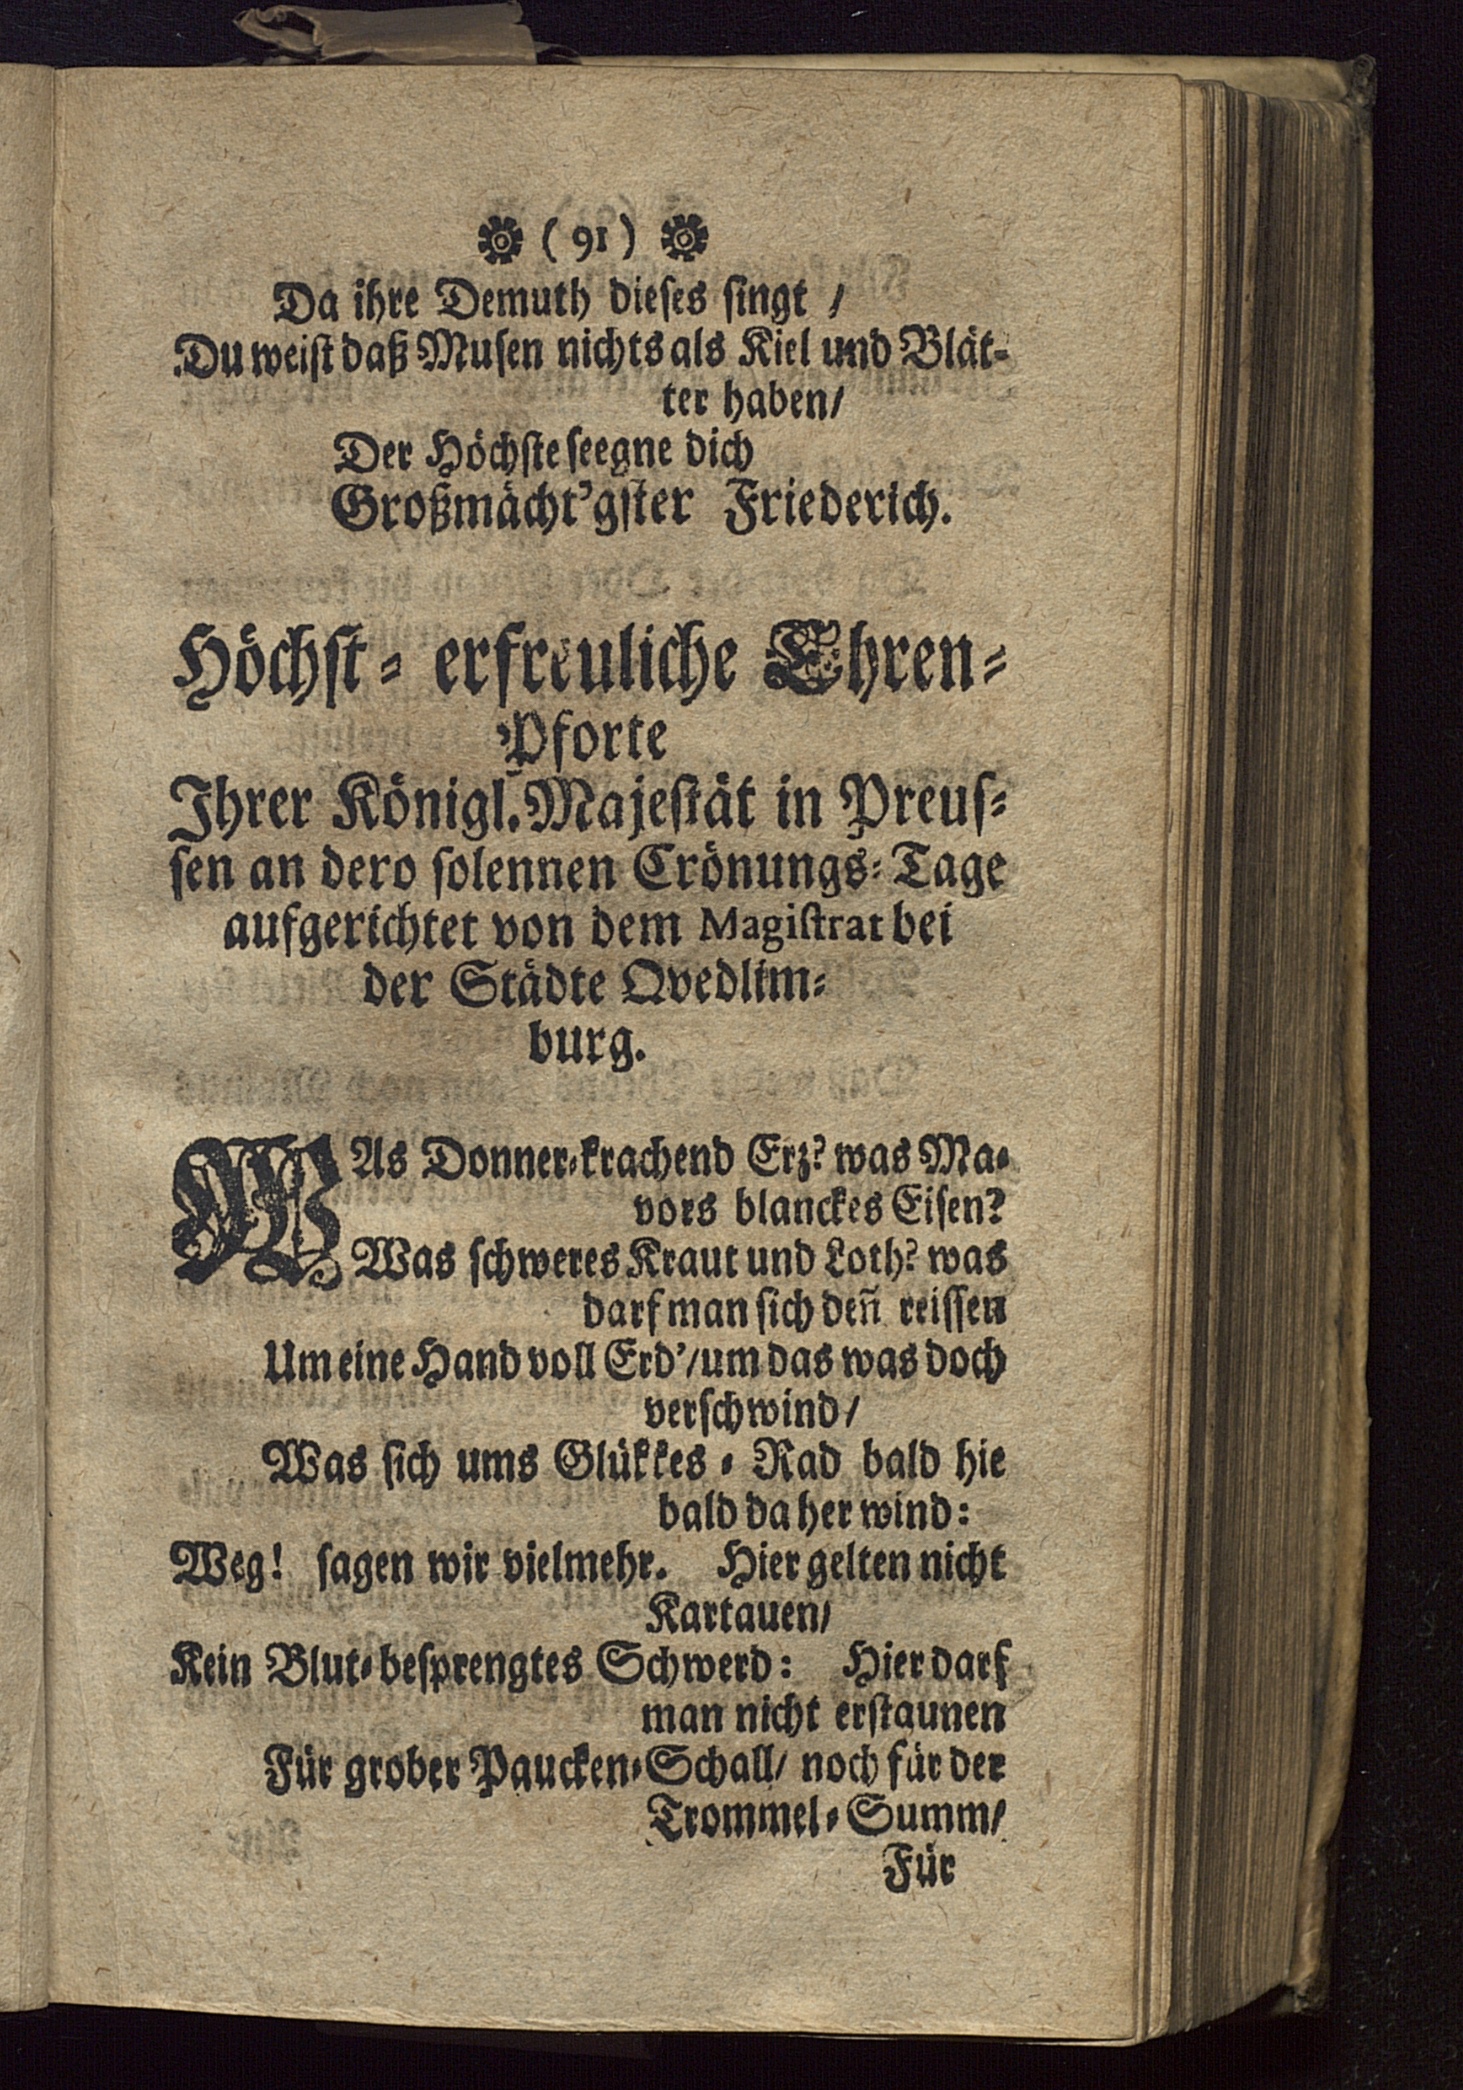 ( 91 )
Da ihre Demuth dieses singt /
Du weist daß Musen nichts als Kiel und Blät-
ter haben/
Der Höchste seegne dich
Großmächt'gster Friederich.
Höchst- erfreuliche Ehren-
Pforte
Ihrer Königl. Majestät in Preus-
sen an dero solennen Crönungs-Tage
aufgerichtet von dem Magistrat bei
der Städte Qvedlim-
burg.
WAs Donner-krachend Erz? was Ma-
vors blanckes Eisen?
Was schweres Kraut und Loth? was
darf man sich deñ reissen
Um eine Hand voll Erd'/um das was doch
verschwind/
Was sich ums Glükkes-Rad bald hie
bald da her wind:
Weg! sagen wir vielmehr. Hier gelten nicht
Kartauen/
Kein Blut-besprengtes Schwerd: Hier darf
man nicht erstaunen
Für grober Paucken-Schall/ noch für der
Trommel-Summ/
Für